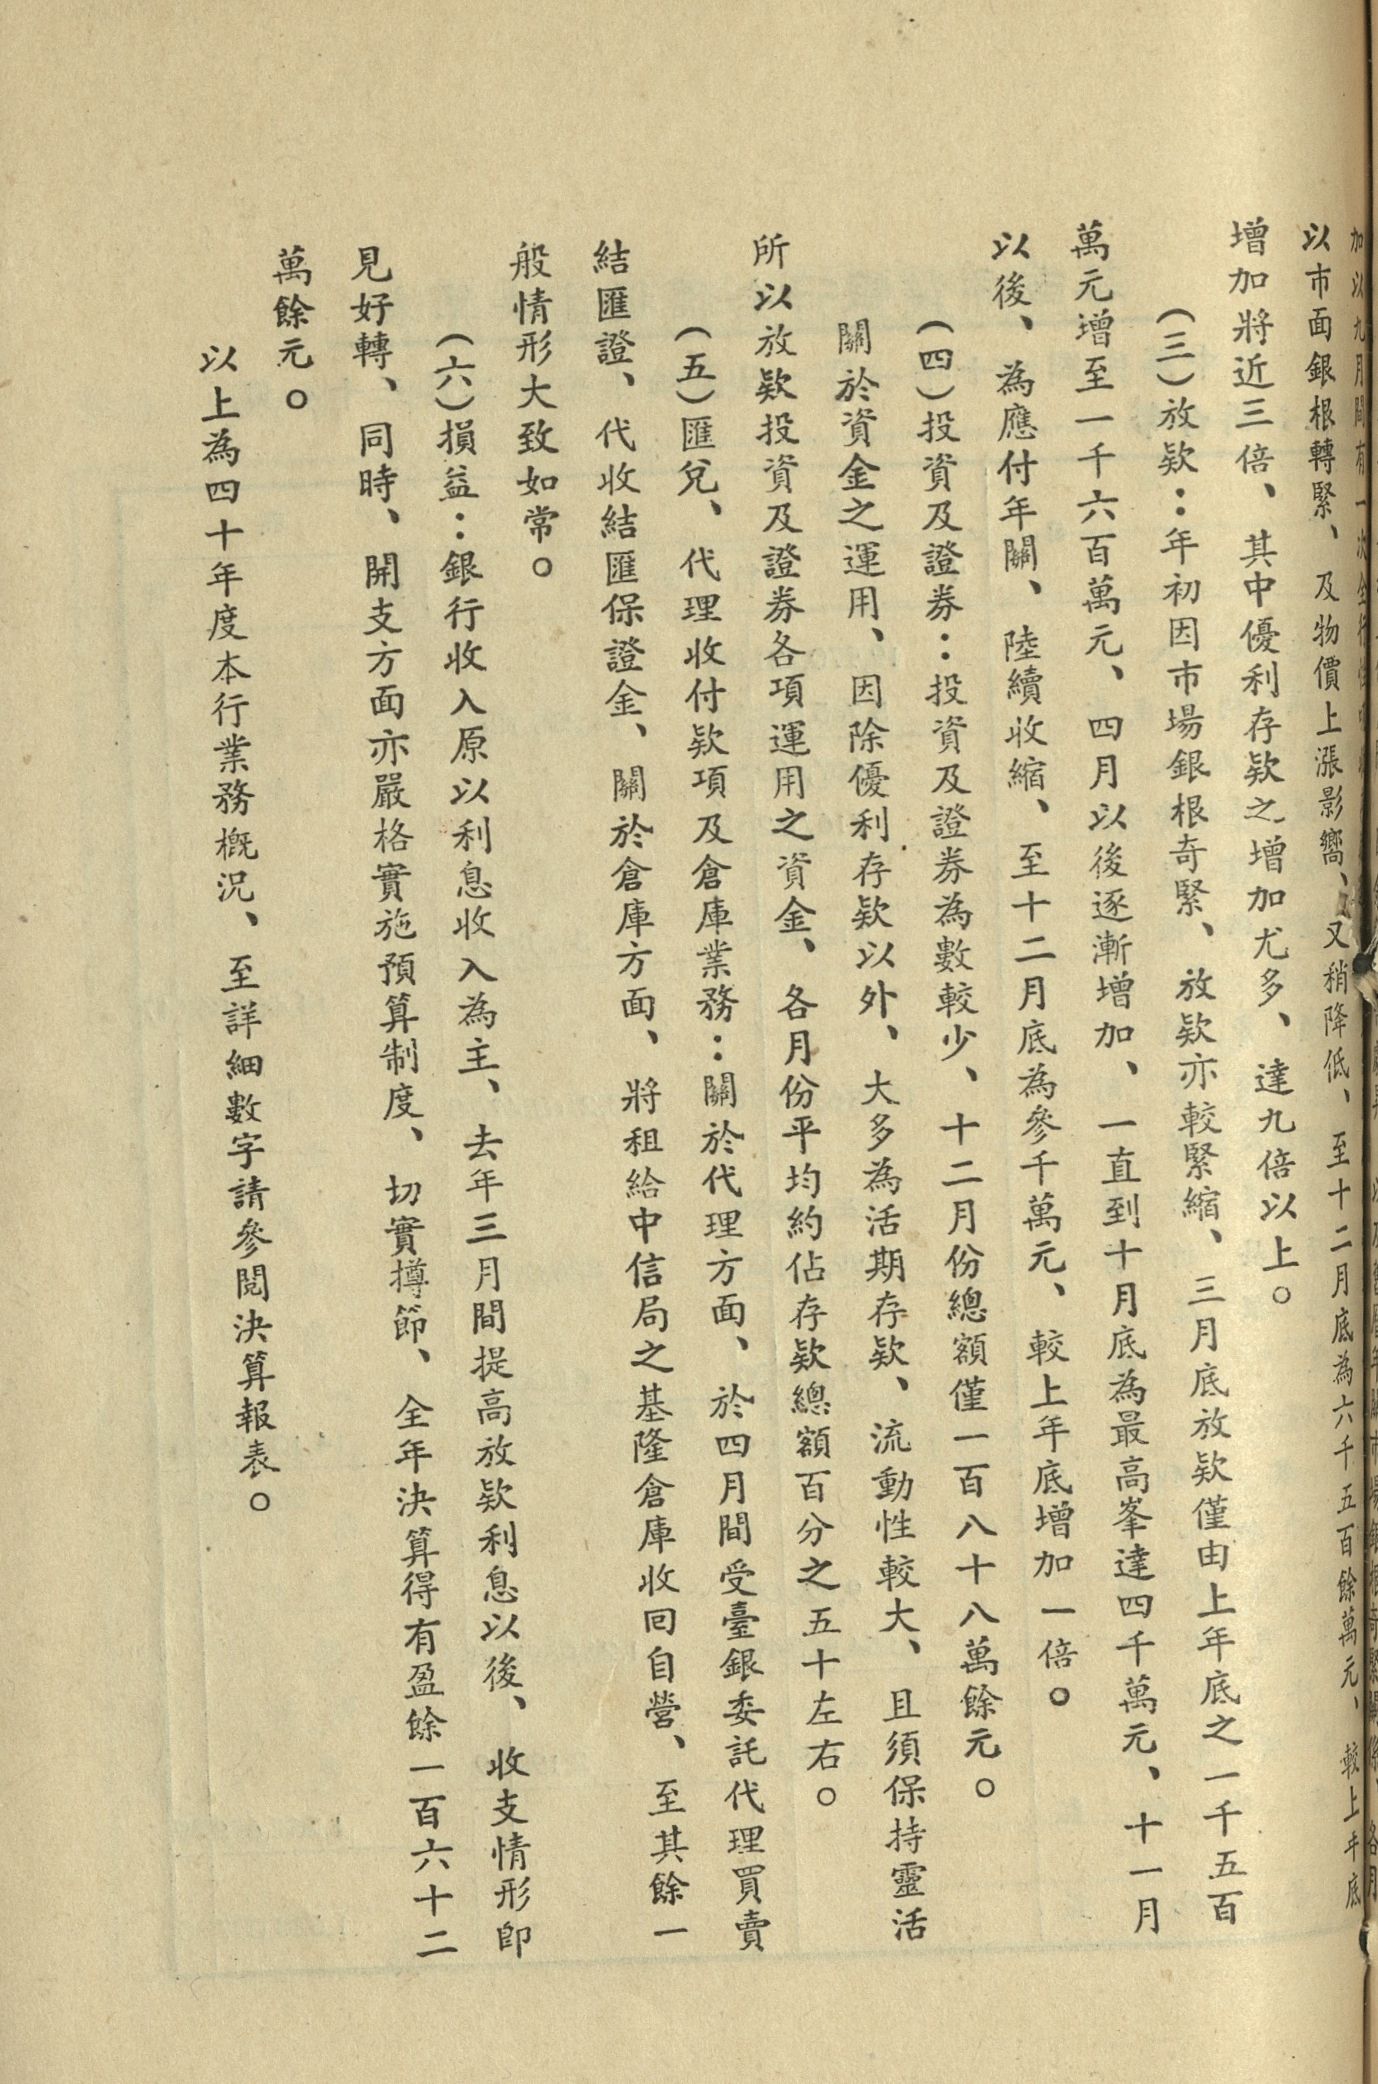 加以九月間有一次金
以市面銀根轉緊、及物價上漲影嚮、又稍降低、至十二月底為六千五百餘萬元、較上年底
增加將近三倍、其中優利存欵之增加尤多、達九倍以上。
(三)放欵：年初因市場銀根奇緊、放欵亦較緊縮、三月底放欵僅由上年底之一千五百
萬元增至一千六百萬元、四月以後逐漸增加、一直到十月底為最高峯達四千萬元、十一月
以後、為應付年關、陸續收縮、至十二月底為參千萬元、較上年底增加一倍。
(四)投資及證券：投資及證券為數較少、十二月份總額僅一百八十八萬餘元。
關於資金之運用、因除優利存欵以外、大多為活期存欵、流動性較大、且須保持靈活
所以放欵投資及證券各項運用之資金、各月份平均約佔存欵總額百分之五十左右。
(五)匯兌、代理收付欵項及倉庫業務：關於代理方面、於四月間受臺銀委託代理買賣
結匯證、代收結匯保證金、關於倉庫方面、將租給中信局之基隆倉庫收回自營、至其餘一
般情形大致如常。
(六)損益：銀行收入原以利息收入為主、去年三月間提高放欵利息以後、收支情形即
見好轉、同時、開支方面亦嚴格實施預算制度、切實撙節、全年決算得有盈餘一百六十二
萬餘元。
以上為四十年度本行業務概況、至詳細數字請參閱決算報表。